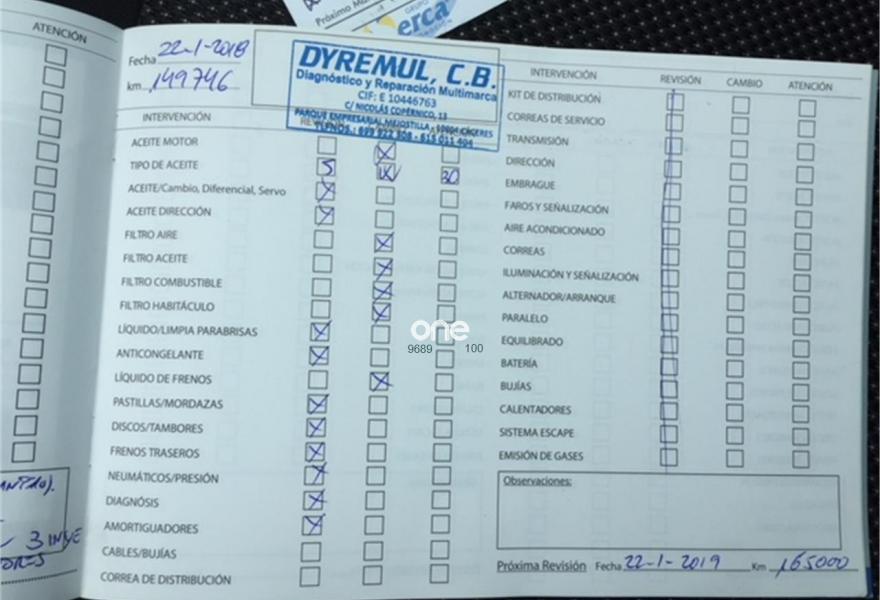 Próximo
erca
ATENCIÓN
3
Fecha 22-1-2018
km 149746
DYREMUL, C.B.
Diagnóstico y Reparación Multimarca
CIF: E 10446763
C/ NICOLÁS COPÉRNICO, 13
PARQUE EMPRESARIAL MEJOSTILLA - 10004 CÁCERES
TLFNOS.: 699 922 308 - 615 011 404
INTERVENCIÓN
ACEITE MOTOR
TIPO DE ACEITE 5 W 30
ACEITE/Cambio, Diferencial, Servo
ACEITE DIRECCIÓN
FILTRO AIRE
FILTRO ACEITE
FILTRO COMBUSTIBLE
FILTRO HABITÁCULO
LÍQUIDO/LIMPIA PARABRISAS
ANTICONGELANTE
LÍQUIDO DE FRENOS
PASTILLAS/MORDAZAS
DISCOS/TAMBORES
FRENOS TRASEROS
NEUMÁTICOS/PRESIÓN
DIAGNÓSIS
AMORTIGUADORES
CABLES/BUJÍAS
CORREA DE DISTRIBUCIÓN
one
9689 100
INTERVENCIÓN REVISIÓN CAMBIO ATENCIÓN
KIT DE DISTRIBUCIÓN
CORREAS DE SERVICIO
TRANSMISIÓN
DIRECCIÓN
EMBRAGUE
FAROS Y SEÑALIZACIÓN
AIRE ACONDICIONADO
CORREAS
ILUMINACIÓN Y SEÑALIZACIÓN
ALTERNADOR/ARRANQUE
PARALELO
EQUILIBRADO
BATERÍA
BUJÍAS
CALENTADORES
SISTEMA ESCAPE
EMISIÓN DE GASES
Observaciones:
Próxima Revisión Fecha 22-1-2019 Km 165000